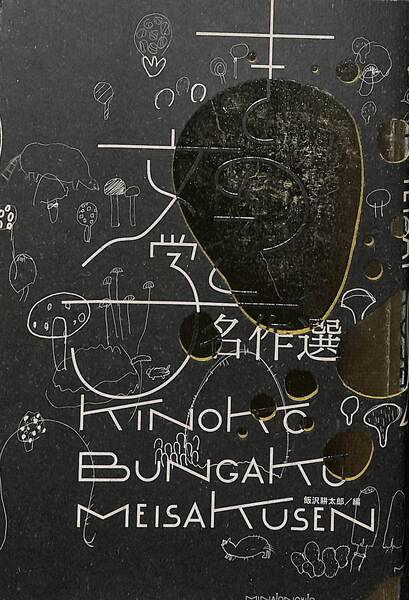 きのこ
文学
名作選
KINOKO
BUNGAKU
飯沢耕太郎／編
MEISAKUSEN